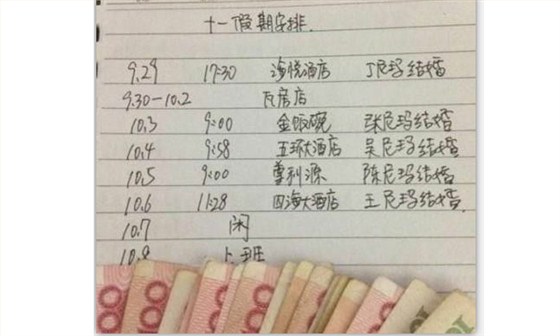 十一假期安排
9.29 17:30 海悦酒店 丁尼玛结婚
9.30-10.2 瓦房店
10.3 9:00 金饭碗 张尼玛结婚
10.4 9:58 五环大酒店 吴尼玛结婚
10.5 9:00 尊利源 陈尼玛结婚
10.6 11:28 四海大酒店 王尼玛结婚
10.7 闲
10.8 上班
100